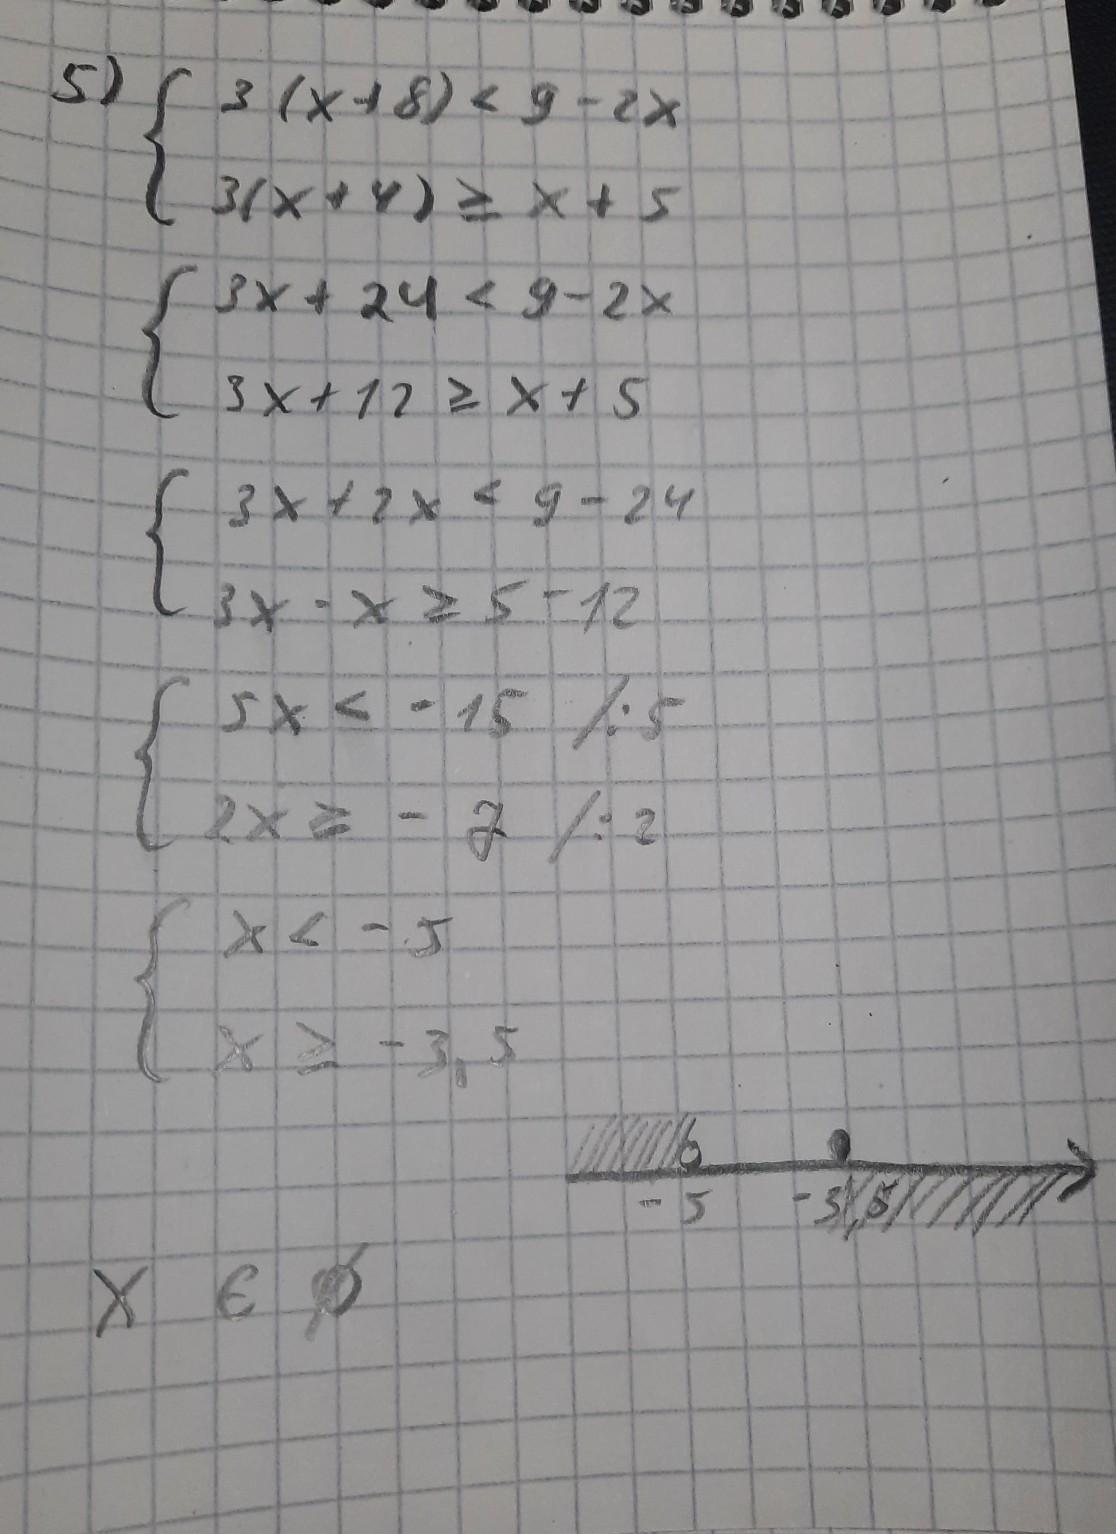 5) { 3(x+8) < 9 - 2x
3(x+4) ≥ x + 5
{ 3x + 24 < 9 - 2x
3x + 12 ≥ x + 5
{ 3x + 2x < 9 - 24
3x - x ≥ 5 - 12
{ 5x < - 15 /:5
2x ≥ - 7 /:2
{ x < - 5
x ≥ - 3,5
- 5 -3,5
X ∈ ∅